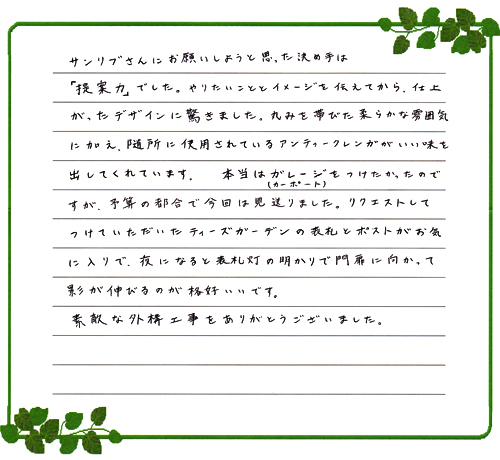 サンリブさんにお願いしようと思った決め手は
「提案力」でした。やりたいこととイメージを伝えてから、仕上
がったデザインに驚きました。丸みを帯びた柔らかな雰囲気
に加え、随所に使用されているアンティークレンガがいい味を
出してくれています。 本当はガレージをつけたかったので
(カーポート)
すが、予算の都合で今回は見送りました。リクエストして
つけていただいたディーズガーデンの表札とポストがお気
に入りで、夜になると表札灯の明かりで門扉に向かって
影が伸びるのが格好いいです。
素敵な外構工事をありがとうございました。